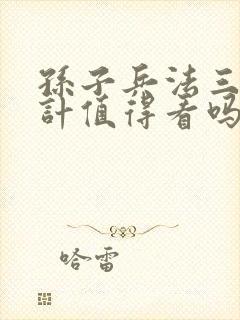 孫子兵法三
計值得看嗎
哈雷